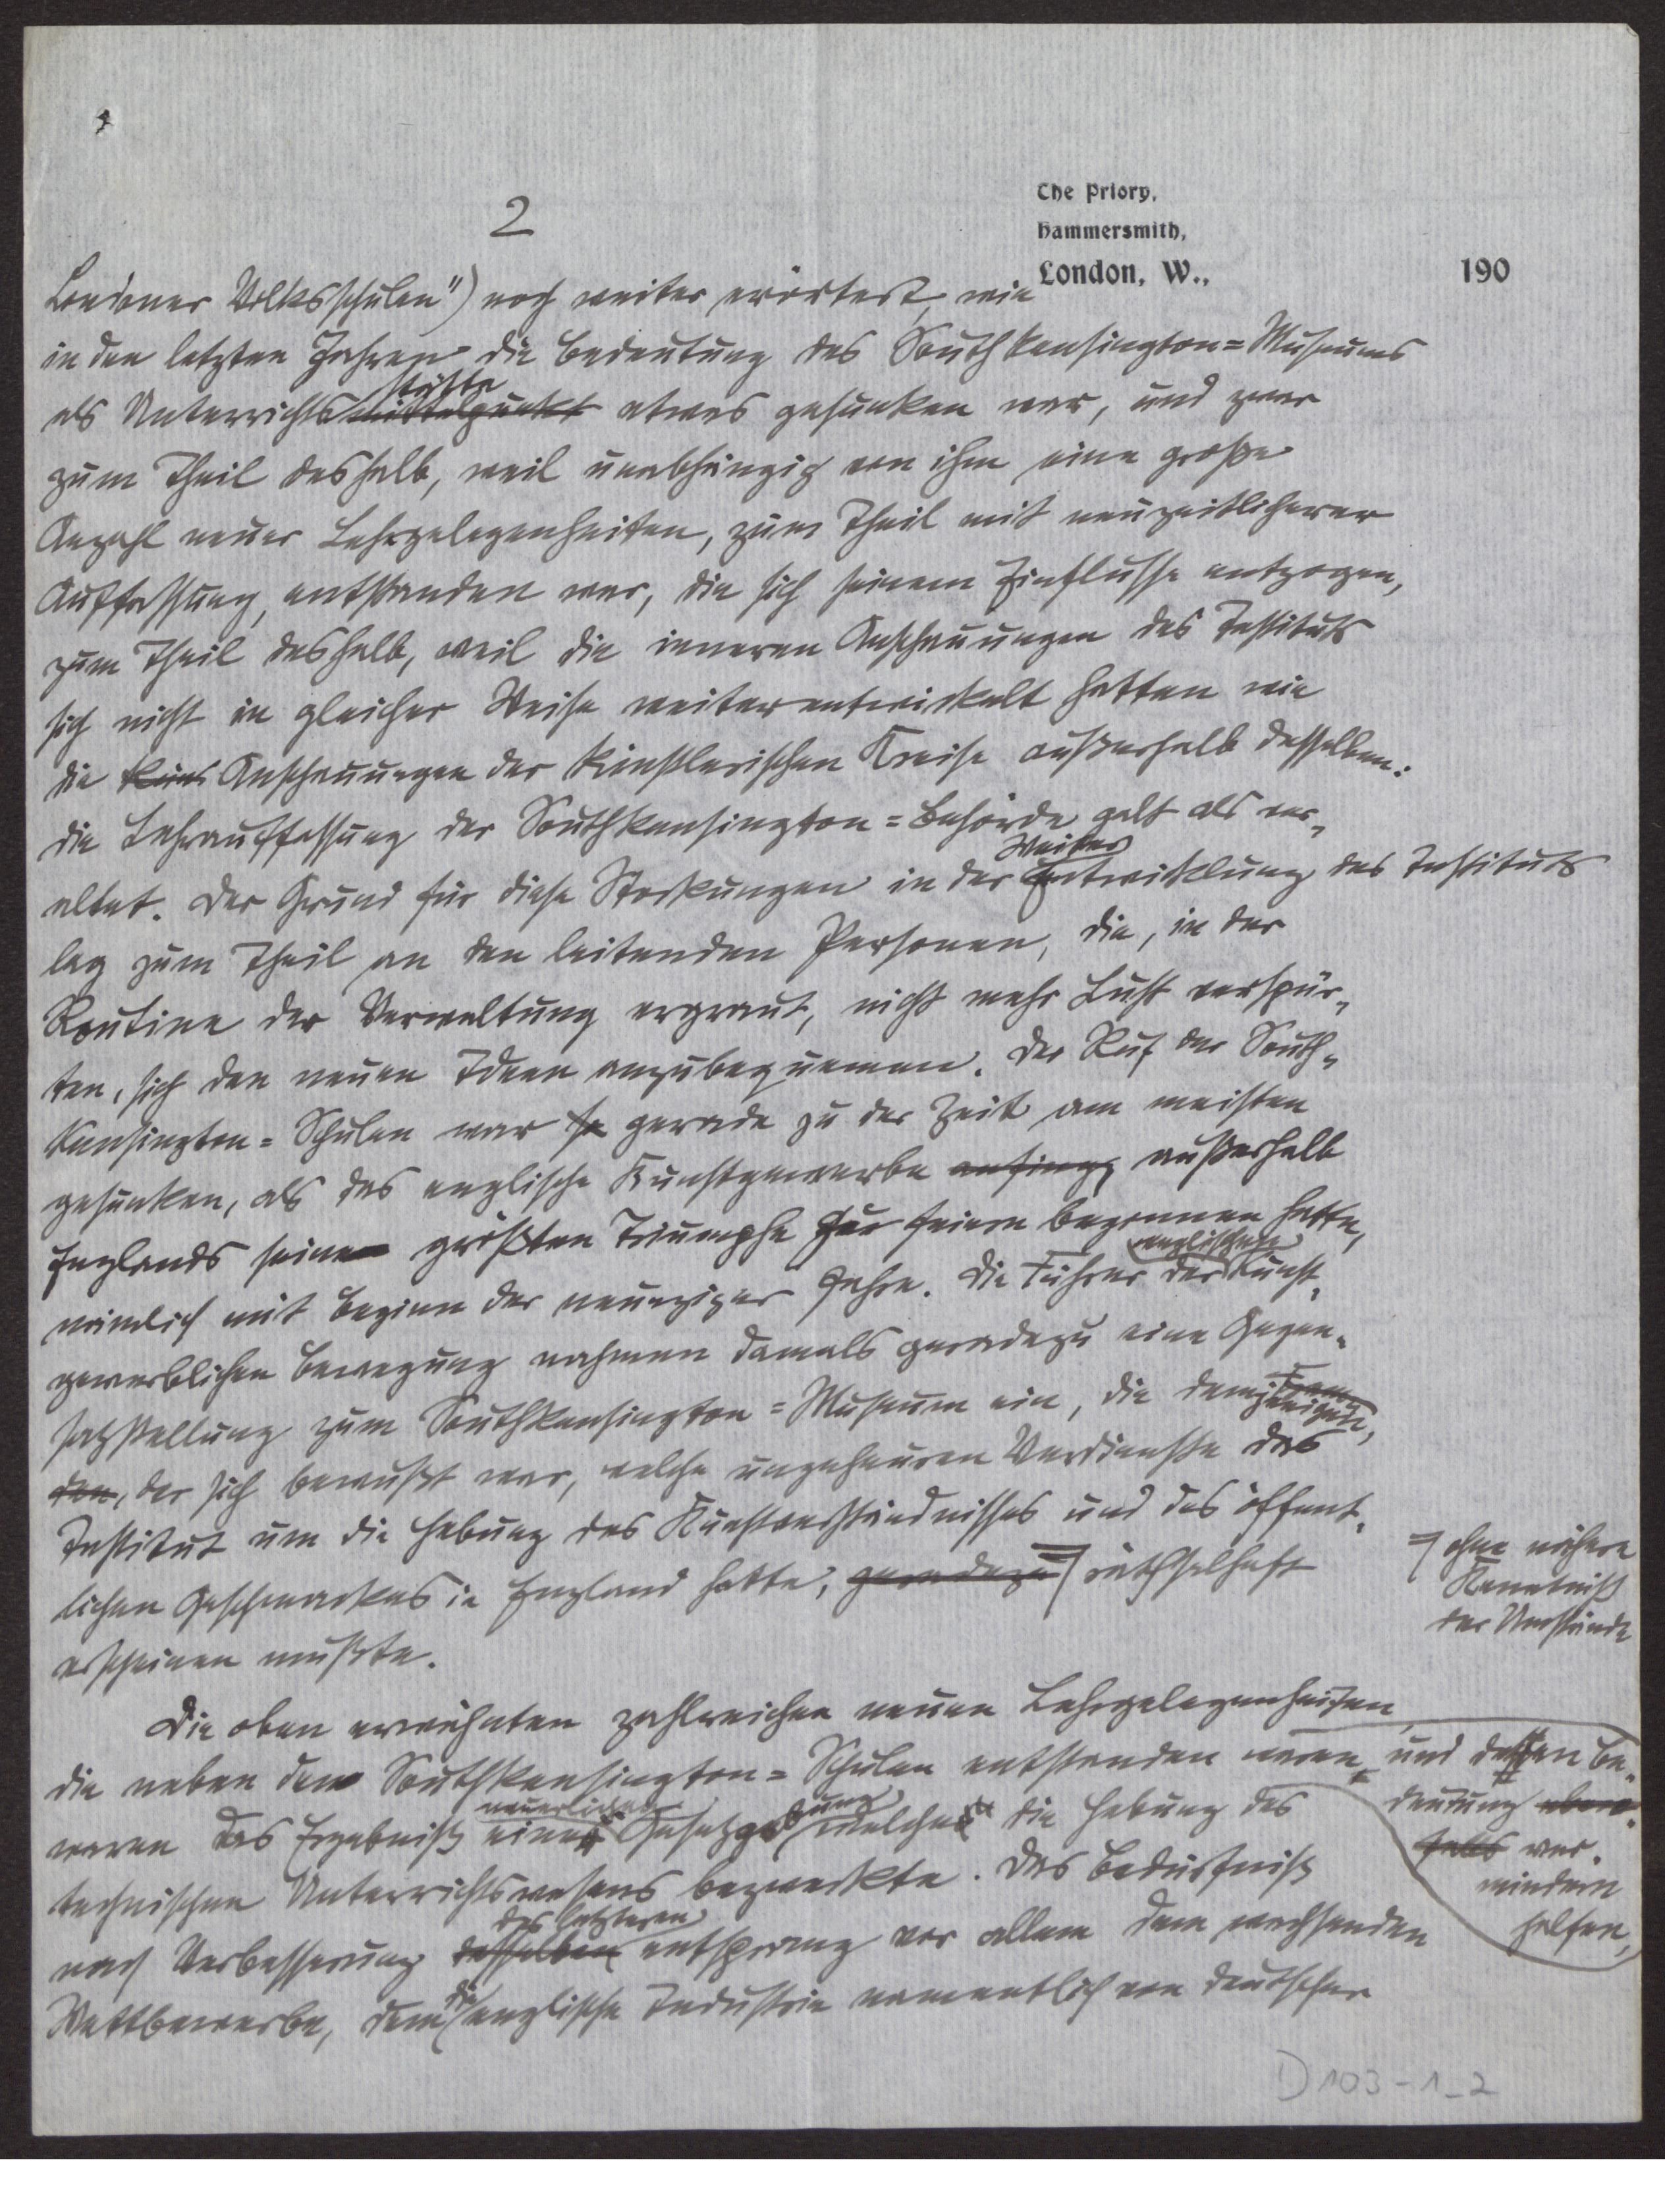 The Priory,
Hammersmith,
London, W.,
190
2
Londoner Volksschulen") noch weiter erörtert, wie
in den letzten Jahren die Bedeutung des Southkensington=Museums
als Unterrichtsmittelpunkt stätte etwas gesunken war, und zwar
zum Theil deshalb, weil unabhängig von ihm eine große
Anzahl neuer Lehrgelegenheiten, zum Theil mit neuzeitlicherer
Auffassung, entstanden war, die sich seinem Einflusse entzogen,
zum Theil deshalb, weil die inneren Anschauungen des Instituts
sich nicht in gleicher Weise weiterentwickelt hatten wie
die küns Anschauungen der künstlerischen Kreise außerhalb desselben:
die Lehrauffassung der Southkensington=Behörde galt als ver-
altet. Der Grund für diese Stockungen in der Weiter Entwicklung des Instituts
lag zum Theil an den leitenden Personen, die, in der
Routine der Verwaltung ergraut, nicht mehr Lust verspür-
ten, sich den neuen Ideen anzubequemen. Der Ruf der South-
Kensington=Schulen war so gerade zu der Zeit am meisten
gesunken, als das englische Kunstgewerbe anfing, außerhalb
Englands seine größten Triumphe zu feiern begonnen hatte,
nämlich mit Beginn der neunziger Jahre. Die Führer der englischen Kunst-
gewerblichen Bewegung nahmen damals geradezu eine Gegen-
satzstellung zum Southkensington=Museum ein, die demjenigen,
den, der sich bewußt war, welche ungeheuren Verdienste das
Institut um die Hebung des Kunstverständnisses und des öffent-
lichen Geschmackes in England hatte, geradezu räthselhaft
ohne nähere
Kenntniß
der Umstände
erscheinen mußte.
Die oben erwähnten zahlreichen neuen Lehrgelegenheiten
die neben den Southkensington=Schulen entstanden waren und dessen Be-
deutung
ver-
mindern
helfen,
waren das Ergebniß einer neuerlichen Gesetzgebung welche die Hebung des
technischen Unterrichtswesens bezweckte. Das Bedürfniß
nach Verbesserung desselben des letzteren entsprang vor allem dem wachsenden
Wettbewerbe, dem die englische Industrie namentlich von deutscher
D 103-1_2